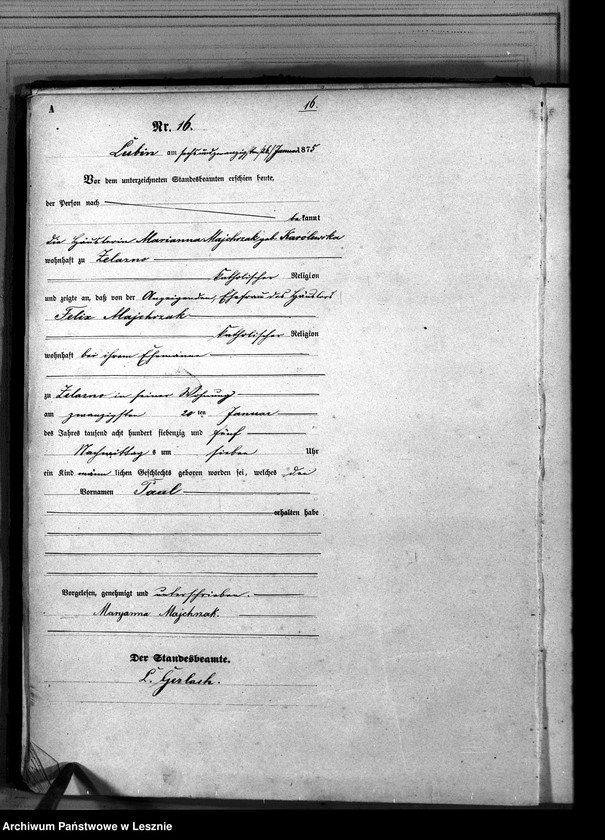 A
16.
Nr. 16.
Lubin am sechs und zwanzigsten /26/ Januar 1875
Vor dem unterzeichneten Standesbeamten erschien heute,
der Person nach
bekannt
die Häuslerin Marianna Majchrzak geb. Karolewska
wohnhaft zu Zelazno
katholischer Religion
und zeigte an, daß von der Anzeigenden, Ehefrau des Häuslers
Felix Majchrzak
katholischer Religion
wohnhaft bei ihrem Ehemanne
zu Zelazno in seiner Wohnung
am zwanzigsten 20 ten Januar
des Jahres tausend acht hundert siebenzig und fünf
Nachmittag s um sieben Uhr
ein Kind männ lichen Geschlechts geboren worden sei, welches den
Vornamen Paul
erhalten habe
Vorgelesen, genehmigt und unterschrieben.
Maryanna Majchrzak.
Der Standesbeamte.
L. Gerlach.
Archiwum Państwowe w Lesznie